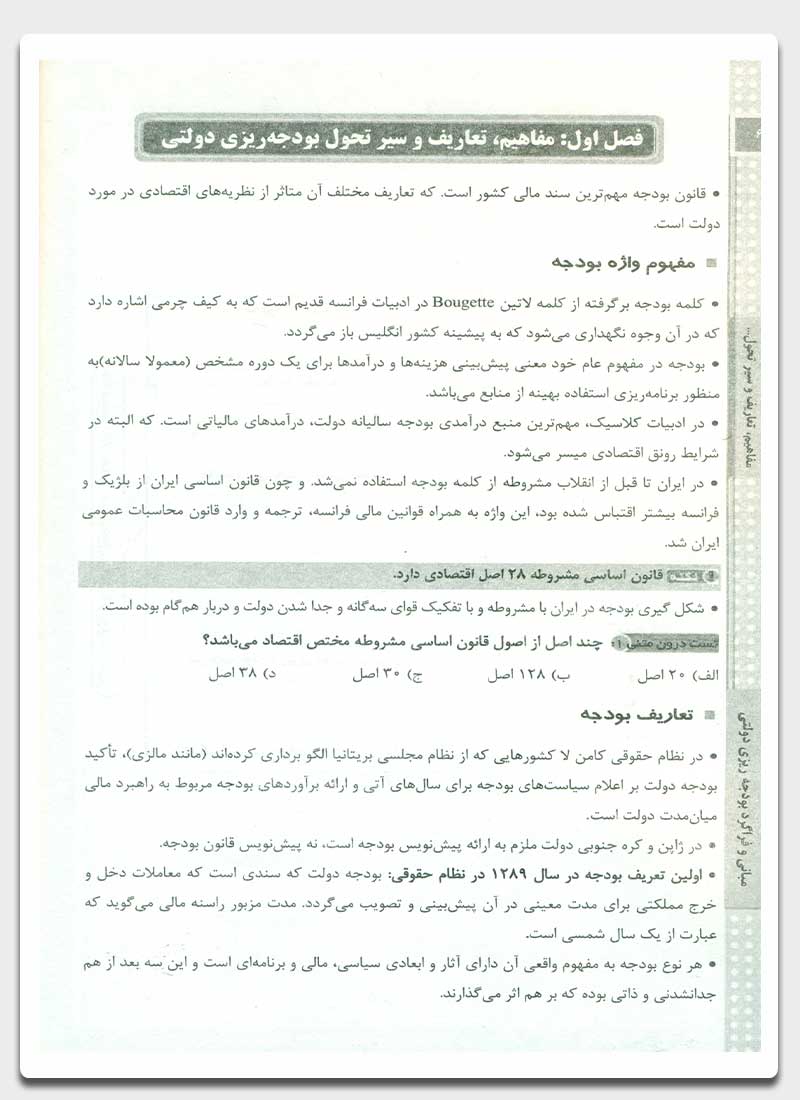 ۶
فصل اول: مفاهیم، تعاریف و سیر تحول بودجه‌ریزی دولتی
• قانون بودجه مهم‌ترین سند مالی کشور است. که تعاریف مختلف آن متاثر از نظریه‌های اقتصادی در مورد
دولت است.
مفهوم واژه بودجه
• کلمه بودجه برگرفته از کلمه لاتین Bougette در ادبیات فرانسه قدیم است که به کیف چرمی اشاره دارد
که در آن وجوه نگهداری می‌شود که به پیشینه کشور انگلیس باز می‌گردد.
• بودجه در مفهوم عام خود معنی پیش‌بینی هزینه‌ها و درآمدها برای یک دوره مشخص (معمولا سالانه)به
منظور برنامه‌ریزی استفاده بهینه از منابع می‌باشد.
• در ادبیات کلاسیک، مهم‌ترین منبع درآمدی بودجه سالیانه دولت، درآمدهای مالیاتی است. که البته در
شرایط رونق اقتصادی میسر می‌شود.
• در ایران تا قبل از انقلاب مشروطه از کلمه بودجه استفاده نمی‌شد. و چون قانون اساسی ایران از بلژیک و
فرانسه بیشتر اقتباس شده بود، این واژه به همراه قوانین مالی فرانسه، ترجمه و وارد قانون محاسبات عمومی
ایران شد.
نکته قانون اساسی مشروطه ۲۸ اصل اقتصادی دارد.
• شکل گیری بودجه در ایران با مشروطه و با تفکیک قوای سه‌گانه و جدا شدن دولت و دربار هم‌گام بوده است.
تست درون متنی ۱: چند اصل از اصول قانون اساسی مشروطه مختص اقتصاد می‌باشد؟
الف) ۲۰ اصل ب) ۱۲۸ اصل ج) ۳۰ اصل د) ۳۸ اصل
تعاریف بودجه
• در نظام حقوقی کامن لا کشورهایی که از نظام مجلسی بریتانیا الگو برداری کرده‌اند (مانند مالزی)، تأکید
بودجه دولت بر اعلام سیاست‌های بودجه برای سال‌های آتی و ارائه برآوردهای بودجه مربوط به راهبرد مالی
میان‌مدت دولت است.
• در ژاپن و کره جنوبی دولت ملزم به ارائه پیش‌نویس بودجه است، نه پیش‌نویس قانون بودجه.
• اولین تعریف بودجه در سال ۱۲۸۹ در نظام حقوقی: بودجه دولت که سندی است که معاملات دخل و
خرج مملکتی برای مدت معینی در آن پیش‌بینی و تصویب می‌گردد. مدت مزبور راسنه مالی می‌گوید که
عبارت از یک سال شمسی است.
• هر نوع بودجه به مفهوم واقعی آن دارای آثار و ابعادی سیاسی، مالی و برنامه‌ای است و این سه بعد از هم
جدانشدنی و ذاتی بوده که بر هم اثر می‌گذارند.
مفاهیم، تعاریف و سیر تحول...
مبانی و فراگرد بودجه ریزی دولتی